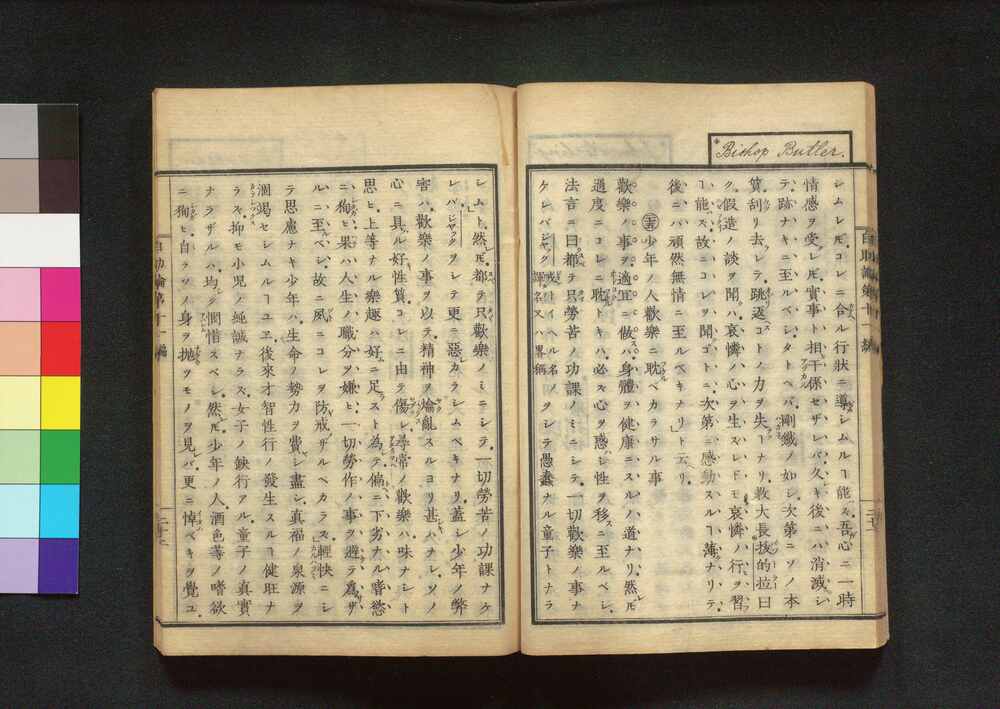 *Bishop Butler.
シムレ𪜈。コレニ合ル行狀ニ導シムルヿ能ズ。吾心ニ一時
情感ヲ受レ𪜈。實事ト相干係セザレバ。久キ後ニハ消滅シ
テ。跡ナキニ至ルベシ。タトヘバ。剛鐵ノ如シ。次第ニソノ本
質刮リ去レテ。跳返コストノ力ヲ失フヿナリ。教大長抜的拉曰
ク。假造ノ談ヲ聞ハ。哀憐ノ心ヲ生ズレドモ。哀憐ノ行ヲ習
ヿ能ズ。故ニコレヲ聞ゴトニ。次第ニ感動スルヿ薄ナリテ。
後ニハ頑然無情ニ至ルベキナリト云リ。」
少年ノ人歡樂ニ耽ベカラサル事
歡樂ノ事ヲ適宜ニ做ハ。身體ヲ健康ニスルノ道ナリ。然𪜈
過度ニコレニ耽トキハ。必ス心ヲ惑ハシ性ヲ移スニ至ルベシ。
法言ニ曰。都テ只勞苦ノ功課ノミニシテ。一切歡樂ノ事ナ
ケレバ。ジャック ヲシテ愚蠢ナル童子トナラ
自助論第十一編
シムト。然𪜈。都テ只歡樂ノミニシテ。一切勞苦ノ功課ナケ
レバ。ジャックヲシテ更ニ惡カラシムベキナリ。蓋シ少年ノ弊
害ハ。歡樂ノ事ヲ以テ。精神ヲ惀亂スルヨリ甚ハナレシ。ソノ
心ニ具ル好性質。コレニ由テ傷レ。尋常ノ歡樂ハ。味ナシト
思ヒ。上等ナル樂趣ハ。好ニ足ズト為テ。偏ニ下劣ナル嗜慾
ニ狥ヒ。果ハ人生ノ職分ヲ嫌ヒ。一切勞作ノ事ヲ避テ為ザ
ルニ至ベシ。故ニ夙ニコレヲ防戒ザルベカラズ。輕快ニシ
テ思慮ナキ少年ハ。生命ノ勢力ヲ費シ盡シ。真福ノ泉源ヲ
涸渇セシムルヿユヱ。後來才智性行ノ發生スルヿ健旺ナ
ラズ。抑モ小児ノ純誠ナラズ。女子ノ鉄行アル。童子ノ真實
ナラザルハ。均ク憫惜スベシ。然𪜈少年ノ人。酒色等ノ嗜欲
ニ狥ヒ。自ラソノ身ヲ拋ツモノヲ見バ。更ニ悼ベキヲ覺ユ。